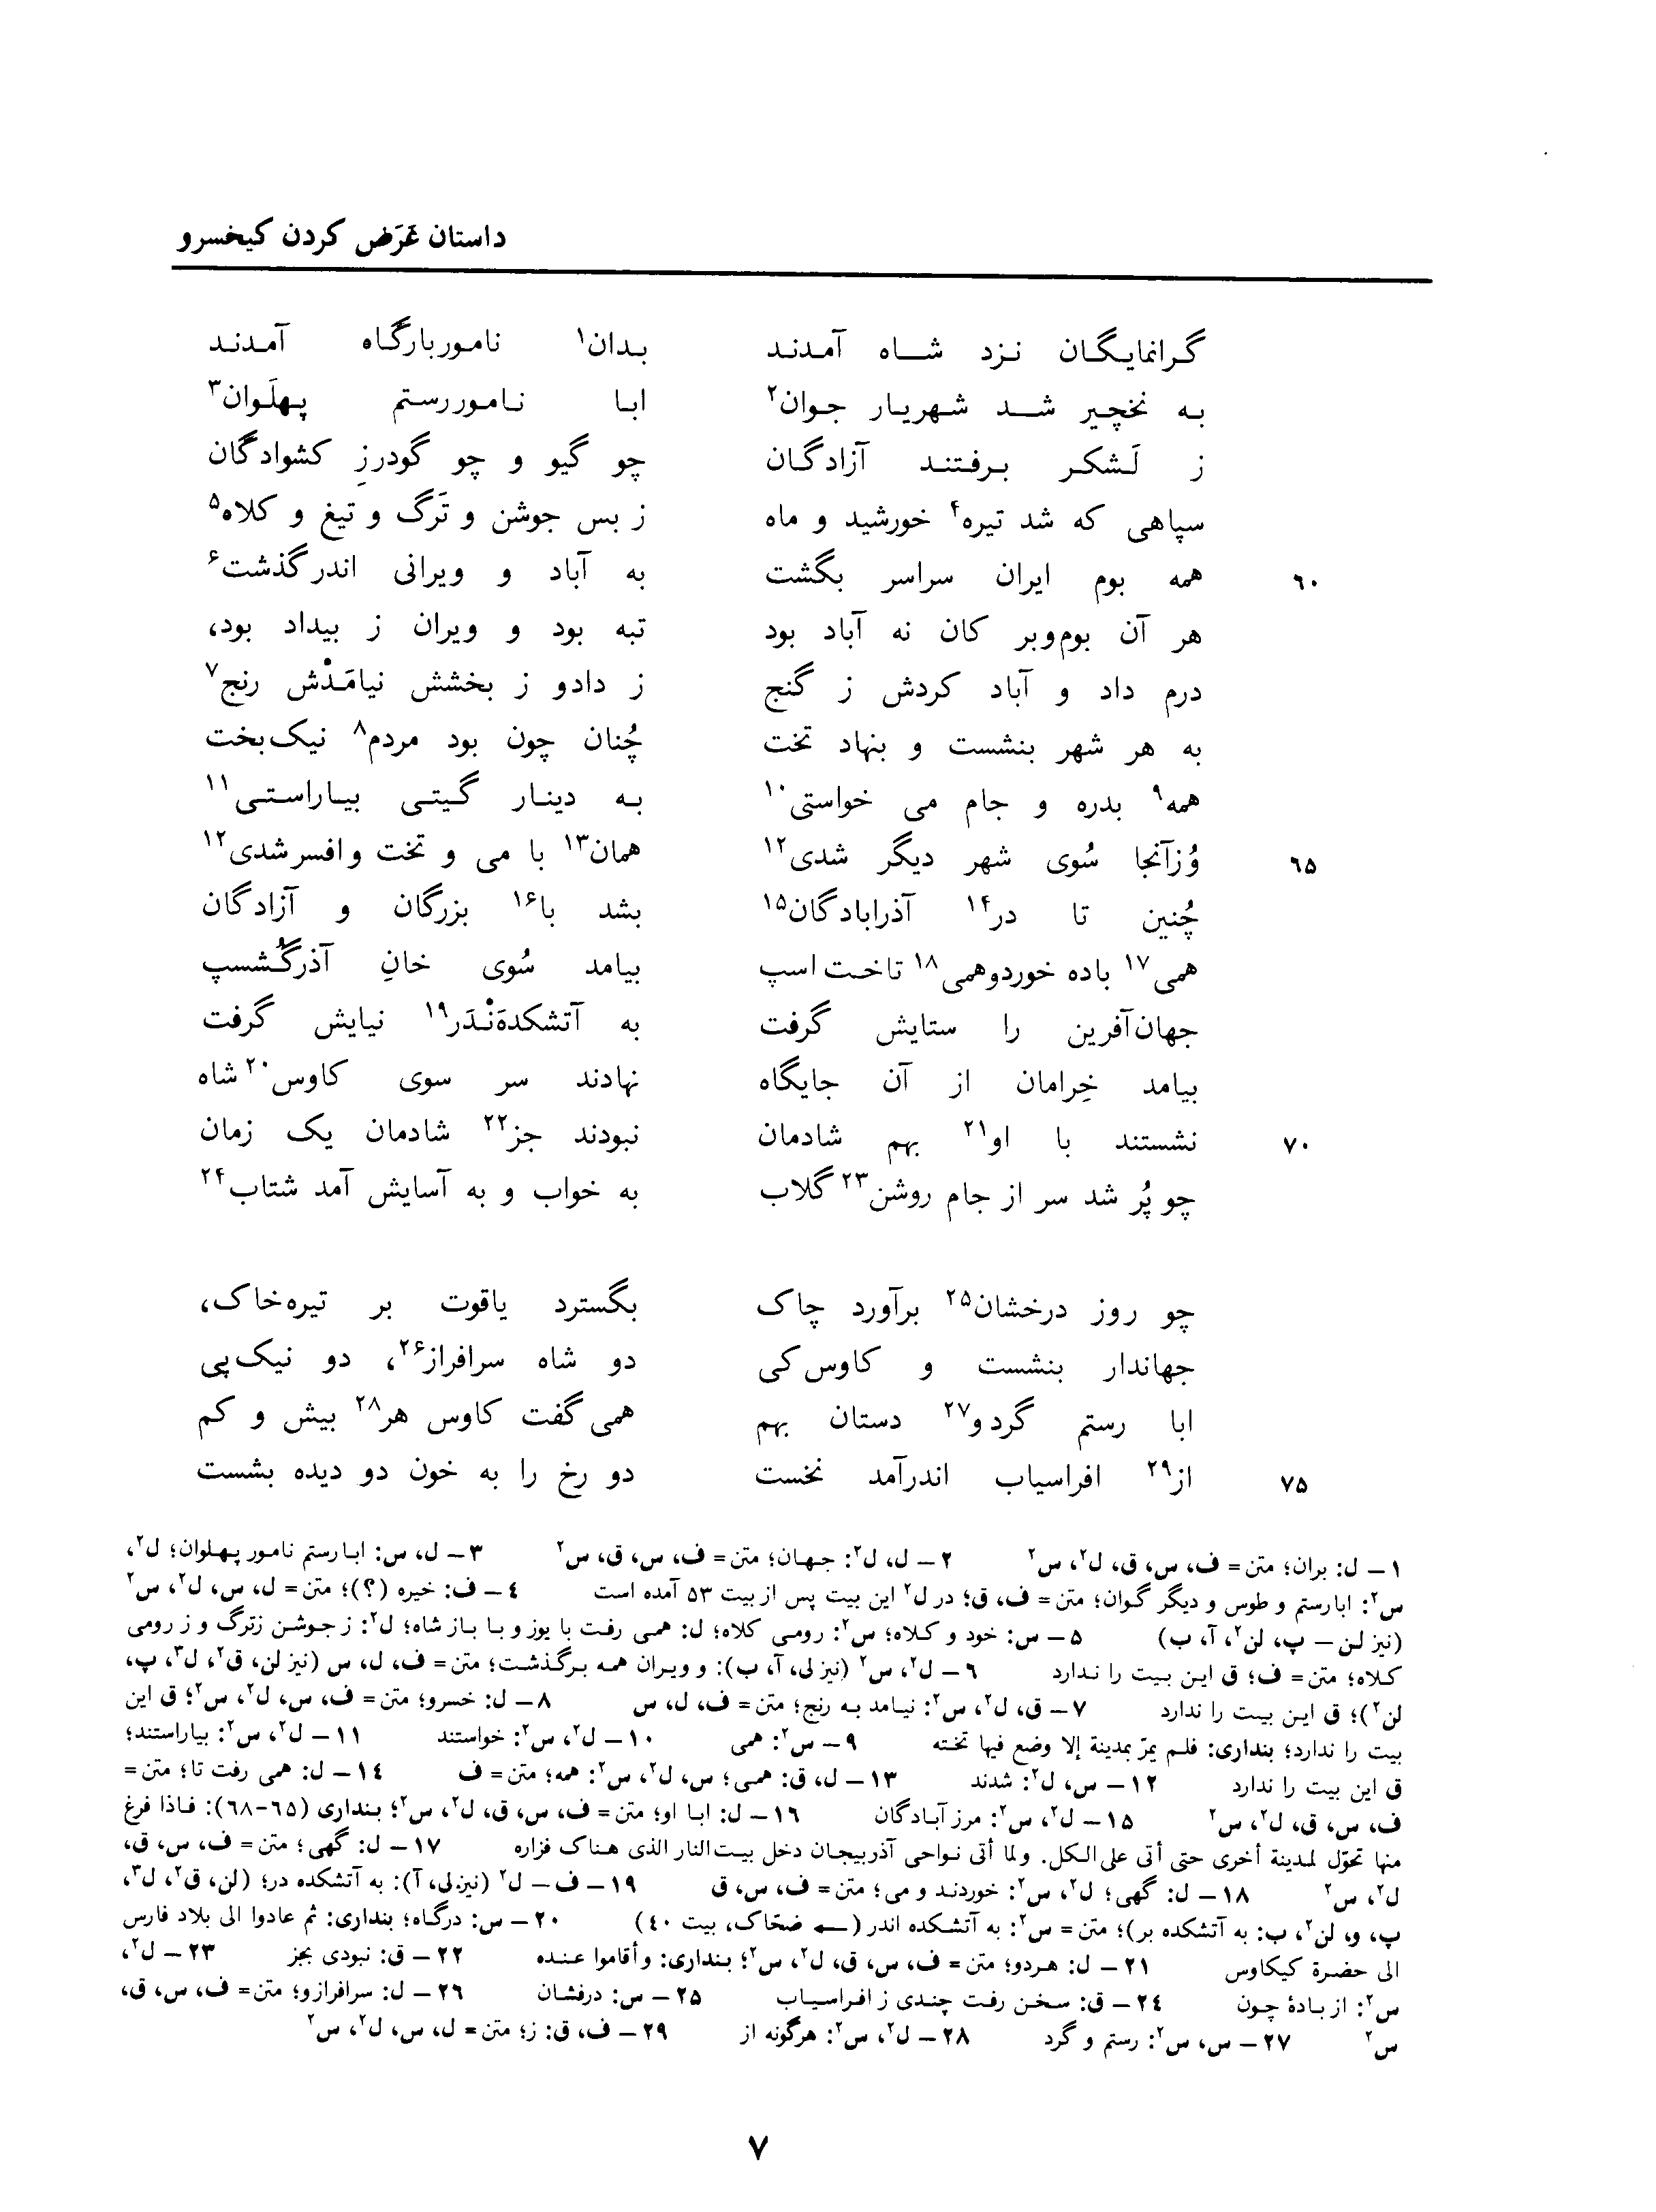 داستان عَرَض کردن کیخسرو
گرانمایگان نزد شاه آمدند بدان¹ نامور بارگاه آمدند
به نخچیر شد شهریار جوان² ابا نامور رستم پهلَوان³
ز لَشکر برفتند آزادگان چو گیو و چو گودرزِ کشوادگان
سپاهی که شد تیره⁴ خورشید و ماه ز بس جوشن و تَرگ و تیغ و کلاه⁵
۶۰ همه بوم ایران سراسر بگشت به آباد و ویرانی اندر گذشت⁶
هر آن بوم‌وبر کان نه آباد بود تبه بود و ویران ز بیداد بود،
درم داد و آباد کردش ز گنج ز دادو ز بخشش نیامَدْش رنج⁷
به هر شهر بنشست و بنهاد تخت چُنان چون بود مردم⁸ نیک‌بخت
همه⁹ بدره و جام می خواستی¹⁰ به دینار گیتی بیاراستی¹¹
۶۵ وُزآنجا سُوی شهر دیگر شدی¹² همان¹³ با می و تخت و افسر شدی¹²
چُنین تا در¹⁴ آذرابادگان¹⁵ بشد با¹⁶ بزرگان و آزادگان
همی¹⁷ باده خوردوهمی¹⁸ تاخت اسپ بیامد سُوی خانِ آذرگُشسپ
جهان‌آفرین را ستایش گرفت به آتشکدهَ‌نْدَر¹⁹ نیایش گرفت
بیامد خِرامان از آن جایگاه نهادند سر سوی کاوس²⁰ شاه
۷۰ نشستند با او²¹ بهم شادمان نبودند جز²² شادمان یک زمان
چو پُر شد سر از جام روشن²³ گلاب به خواب و به آسایش آمد شتاب²⁴
چو روز درخشان²⁵ برآورد چاک بگسترد یاقوت بر تیره‌خاک،
جهاندار بنشست و کاوس کی دو شاه سرافراز²⁶، دو نیک‌پی
ابا رستم گردو²⁷ دستان بهم همی گفت کاوس هر²⁸ بیش و کم
۷۵ از²⁹ افراسیاب اندرآمد نخست دو رخ را به خون دو دیده بشست
۱ – ل: بران؛ متن = ف، س، ق، ل²، س² ۲ – ل، ل²: جهان؛ متن = ف، س، ق، س² ۳ – ل، س: ابا رستم نامور پهلوان؛ ل²،
س²: ابا رستم و طوس و دیگر گوان؛ متن = ف، ق؛ در ل² این بیت پس از بیت ۵۳ آمده است ۴ – ف: خیره (؟)؛ متن = ل، س، ل²، س²
(نیز لن – پ، لن²، آ، ب) ۵ – س: خود و کلاه؛ س²: رومی کلاه؛ ل: همی رفت با یوز و با باز شاه؛ ل²: ز جوشن زترگ و ز رومی
کلاه؛ متن = ف؛ ق این بیت را ندارد ۶ – ل²، س² (نیز لی، آ، ب): و ویران همه برگذشت؛ متن = ف، ل، س (نیز لن، ق²، ل³، پ،
لن²)؛ ق این بیت را ندارد ۷ – ق، ل²، س²: نیامد به رنج؛ متن = ف، ل، س ۸ – ل: خسرو؛ متن = ف، س، ل²، س²؛ ق این
بیت را ندارد؛ بنداری: فلم یمرّ بمدینة إلا وضع فیها تخته ۹ – س²: همی ۱۰ – ل²، س²: خواستند ۱۱ – ل²، س²: بیاراستند؛
ق این بیت را ندارد ۱۲ – س، ل²: شدند ۱۳ – ل، ق: همی؛ س، ل²، س²: همه؛ متن = ف ۱۴ – ل: همی رفت تا؛ متن =
ف، س، ق، ل²، س² ۱۵ – ل²، س²: مرز آبادگان ۱۶ – ل: ابا او؛ متن = ف، س، ق، ل²، س²؛ بنداری (۶۵–۶۸): فاذا فرغ
منها تحوّل لمدینة أخری حتی أتی علی‌الکل. ولما أتی نواحی آذربیجان دخل بیت‌النار الذی هناک فزاره ۱۷ – ل: گهی؛ متن = ف، س، ق،
ل²، س² ۱۸ – ل: گهی؛ ل²، س²: خوردند و می؛ متن = ف، س، ق ۱۹ – ف – ل² (نیزلی، آ): به آتشکده در؛ (لن، ق²، ل³،
پ، و، لن²، ب: به آتشکده بر)؛ متن = س²: به آتشکده اندر (← ضحّاک، بیت ۴۰) ۲۰ – س: درگاه؛ بنداری: ثم عادوا الی بلاد فارس
الی حضرة کیکاوس ۲۱ – ل: هردو؛ متن = ف، س، ق، ل²، س²؛ بنداری: وأقاموا عنده ۲۲ – ق: نبودی بجز ۲۳ – ل²،
س²: از بادهٔ چون ۲۴ – ق: سخن رفت چندی ز افراسیاب ۲۵ – س: درفشان ۲۶ – ل: سرافرازو؛ متن = ف، س، ق،
س² ۲۷ – س، س²: رستم و گرد ۲۸ – ل²، س²: هرگونه از ۲۹ – ف، ق: ز؛ متن = ل، س، ل²، س²
۷